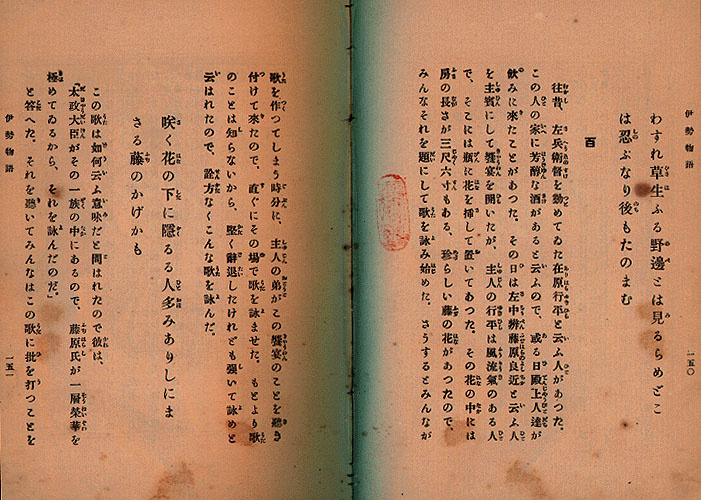 伊勢物語
一五〇
わすれ草生ふる野邊とは見るらめどこ
は忍ぶなり後もたのまむ
百
往昔、左兵衛督を勤めてゐた在原行平と云ふ人があつた。
この人の家に芳醇な酒があると云ふので、或る日殿上人達が
飲みに來たことがあつた。その日は左中辨藤原良近と云ふ人
を主賓にして饗宴を開いたが、主人の行平は風流氣のある人
で、そこには瓶に花を挿して置いてあつた。その花の中には
房の長さが三尺六寸もある、珍らしい藤の花があつたので、
みんなそれを題にして歌を詠み始めた。さうするとみんなが
歌を作つてしまう時分に、主人の弟がこの饗宴のことを聽き
付けて來たので、直ぐにその場で歌を詠ませた。もとより歌
のことは知らないから、堅く辭退したけれども强いて詠めと
云はれたので、詮方なくこんな歌を詠んだ。
咲く花の下に隱るる人多みありしにま
さる藤のかげかも
この歌は如何云ふ意味だと問はれたので彼は、
「太政大臣がその一族の中にあるので、藤原氏が一層榮華を
極めてゐるから、それを詠んだのだ。」
と答へた。それを聽いてみんなはこの歌に批を打つことを
伊勢物語
一五一